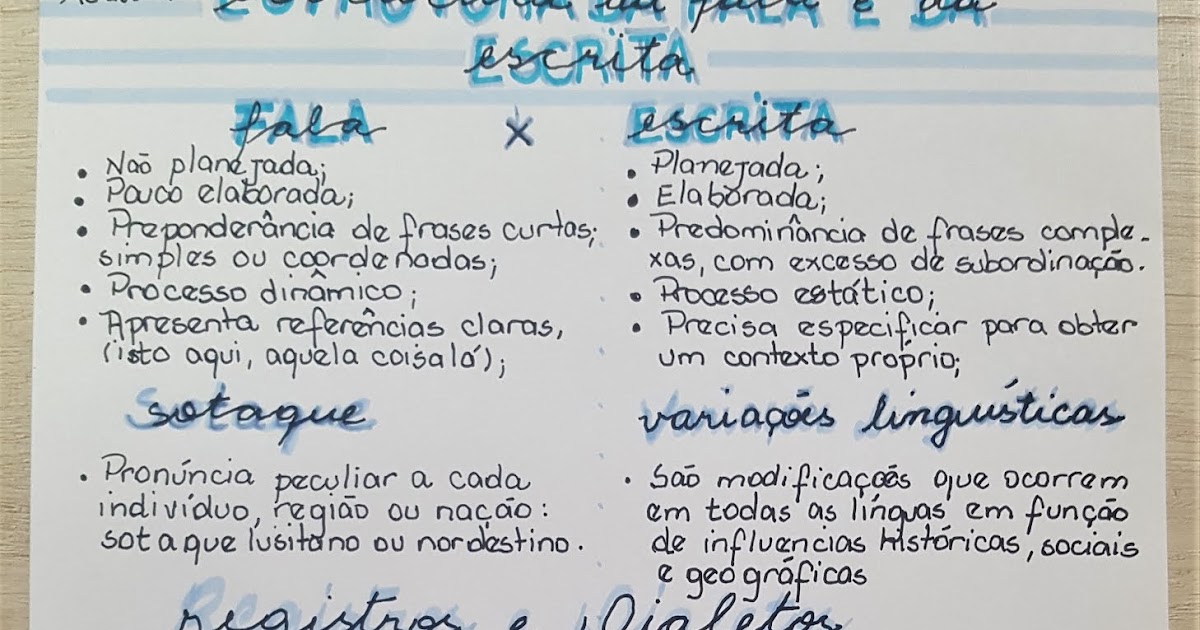 Estrutura da fala e da
escrita
fala X escrita
• Não planejada;
• Pouco elaborada;
• Preponderância de frases curtas;
simples ou coordenadas;
• Processo dinâmico;
• Apresenta referências claras,
(isto aqui, aquela coisa lá);
• Planejada;
• Elaborada;
• Predominância de frases comple-
xas, com excesso de subordinação.
• Processo estático;
• Precisa especificar para obter
um contexto próprio;
sotaque
• Pronúncia peculiar a cada
indivíduo, região ou nação:
sotaque lusitano ou nordestino.
variações linguísticas
• São modificações que ocorrem
em todas as línguas em função
de influencias históricas, sociais
e geográficas
Registros e Dialetos